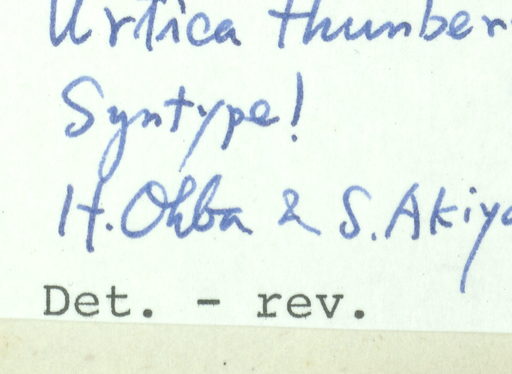 Urtica thunber
Syntype!
H. Ohba & S. Akiy
Det. - rev.